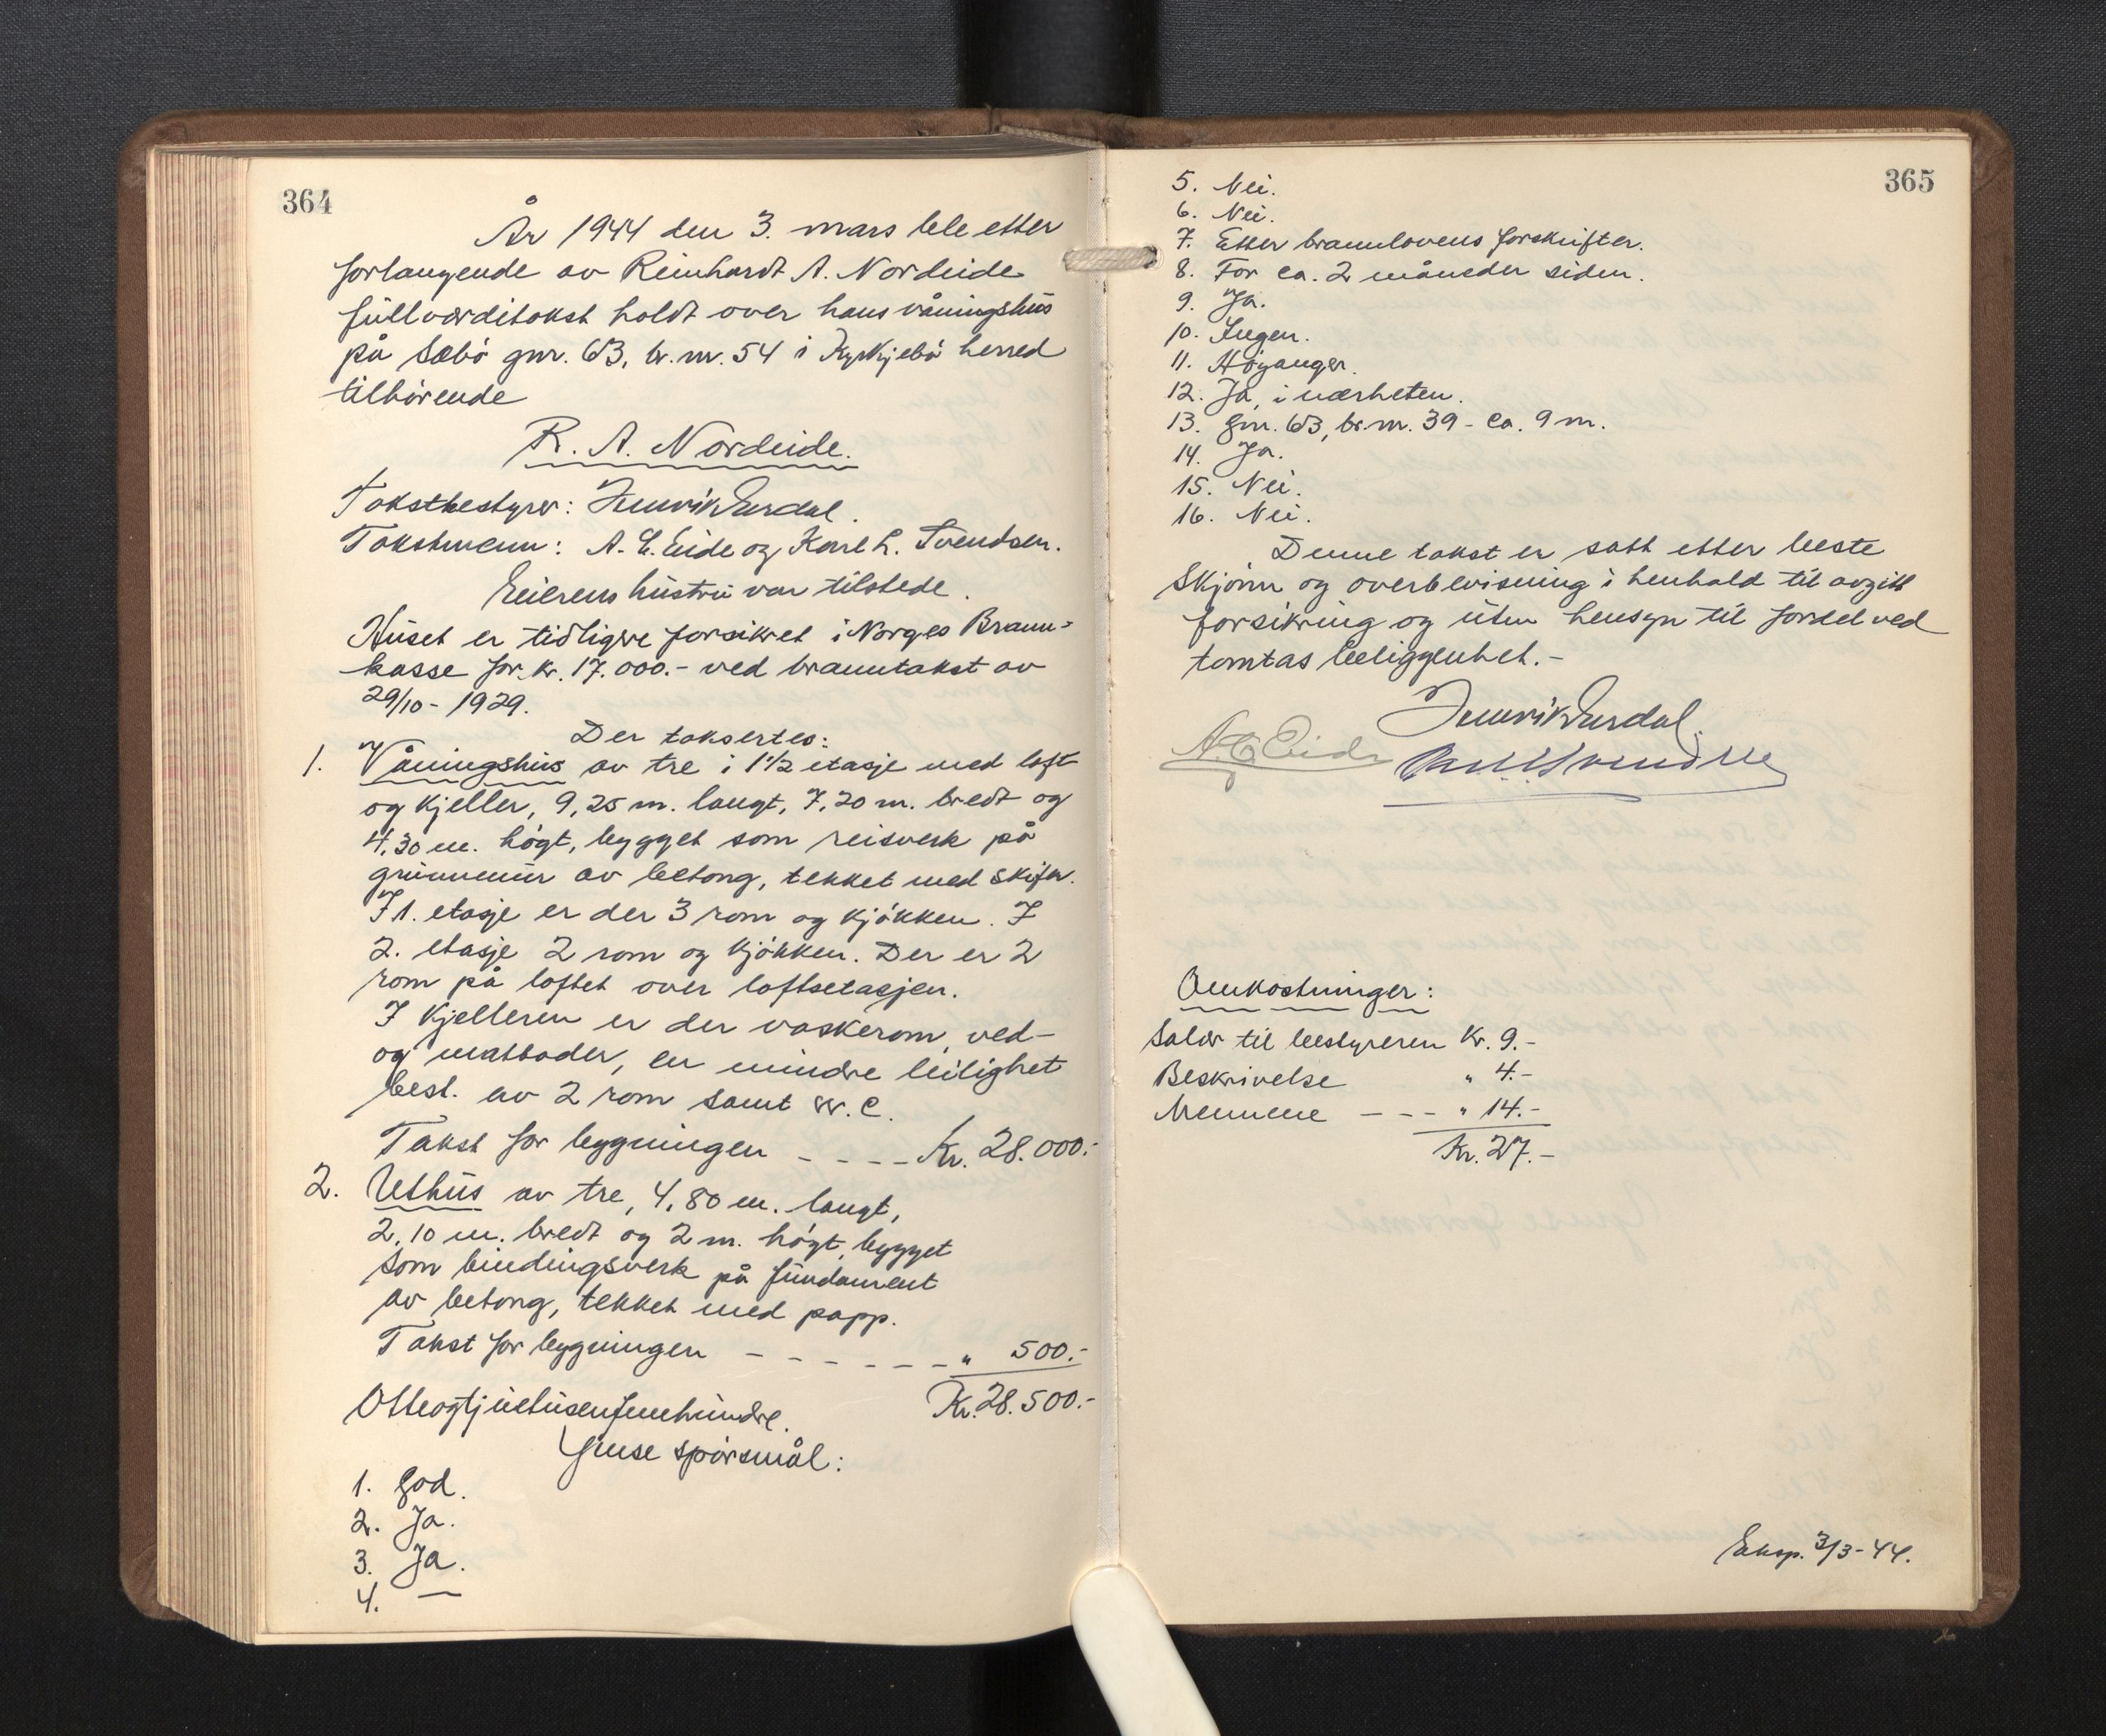 364
År 1944 den 3. mars ble etter
forlangende av Reinhardt A. Nordeide
fullverditakst holdt over hans våningshus
på Sæbö gnr. 63, br. nr. 54 i Kyrkjebö herred
tilhörende
R. A. Nordeide.
Takstbestyrer: Henrik Verdal.
Takstmenn: A. E. Eide og Karl L. Svendsen.
Eierens hustru var tilstede.
Huset er tidligere forsikret i Norges Brann-
kasse for kr. 17.000.- ved branntakst av
29/10 - 1929.
Der takseres:
1. Våningshus av tre i 1 1/2 etasje med loft
og kjeller, 9,25 m. langt, 7,20 m. bredt og
4,30 m. högt, bygget som reisverk på
grunnmur av betong, tekket med skifer.
I 1. etasje er der 3 rom og kjökken. I
2. etasje 2 rom og kjökken. Der er 2
rom på loftet over loftsetasjen.
I kjelleren er der vaskerom, ved-
og matboder, en mindre leilighet
best. av 2 rom samt w.c.
Takst for bygningen - - - - Kr. 28.000.-
2. Uthus av tre, 4,80 m. langt,
2,10 m. bredt og 2 m. högt, bygget
som bindingsverk på fundament
av betong, tekket med papp.
Takst for bygningen - - - - - - - " 500.-
Otteogtjuetusenfemhundre. Kr. 28.500.-
Gjense spörsmål:
1. God.
2. Ja.
3. Ja.
4. —
365
5. Nei.
6. Nei.
7. Etter brannlovens forskrifter.
8. For ca. 2 måneder siden.
9. Ja.
10. Ingen.
11. Höyanger.
12. Ja, i nærheten.
13. Gnr. 63, br. nr. 39 - ca. 9 m.
14. Ja.
15. Nei.
16. Nei.
Denne takst er satt etter beste
skjönn og overbevisning i henhold til avgitt
forsikring og uten hensyn til fordel ved
tomtas beliggenhet.-
Henrik Verdal.
A. E. Eide Karl L. Svendsen
Omkostninger:
Salær til bestyreren Kr. 9.-
Beskrivelse " 4.-
Mennene - - - " 14.-
Kr. 27.-
Eksp. 3/3-44.